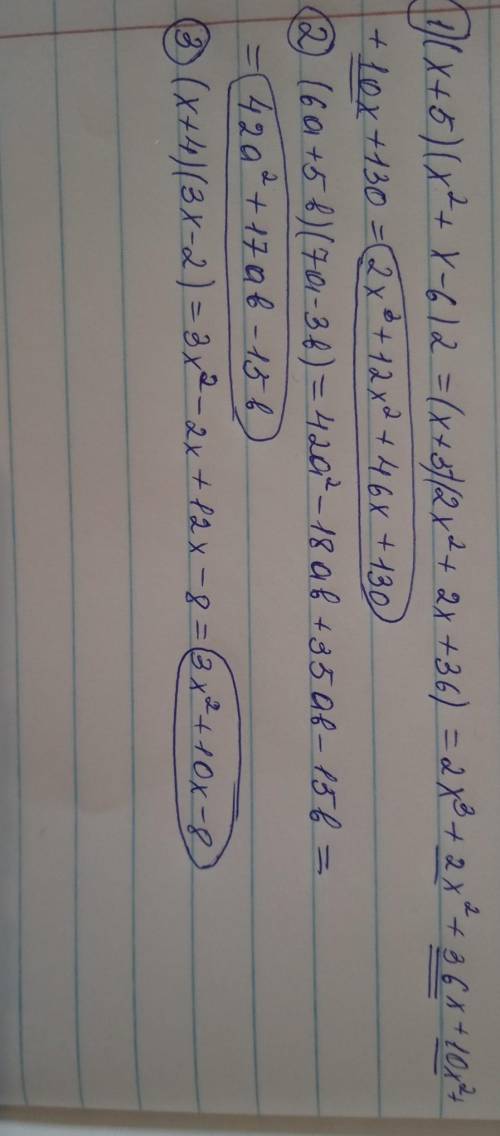 1) (x+5)(x²+x-6)2 = (x+5)(2x²+2x+36) = 2x³+2x²+36x+10x²+
+10x+130 = 2x³+12x²+46x+130
2 (6a+5b)(7a-3b) = 42a²-18ab+35ab-15b =
= 42a²+17ab-15b
3 (x+4)(3x-2) = 3x²-2x+12x-8 = 3x²+10x-8